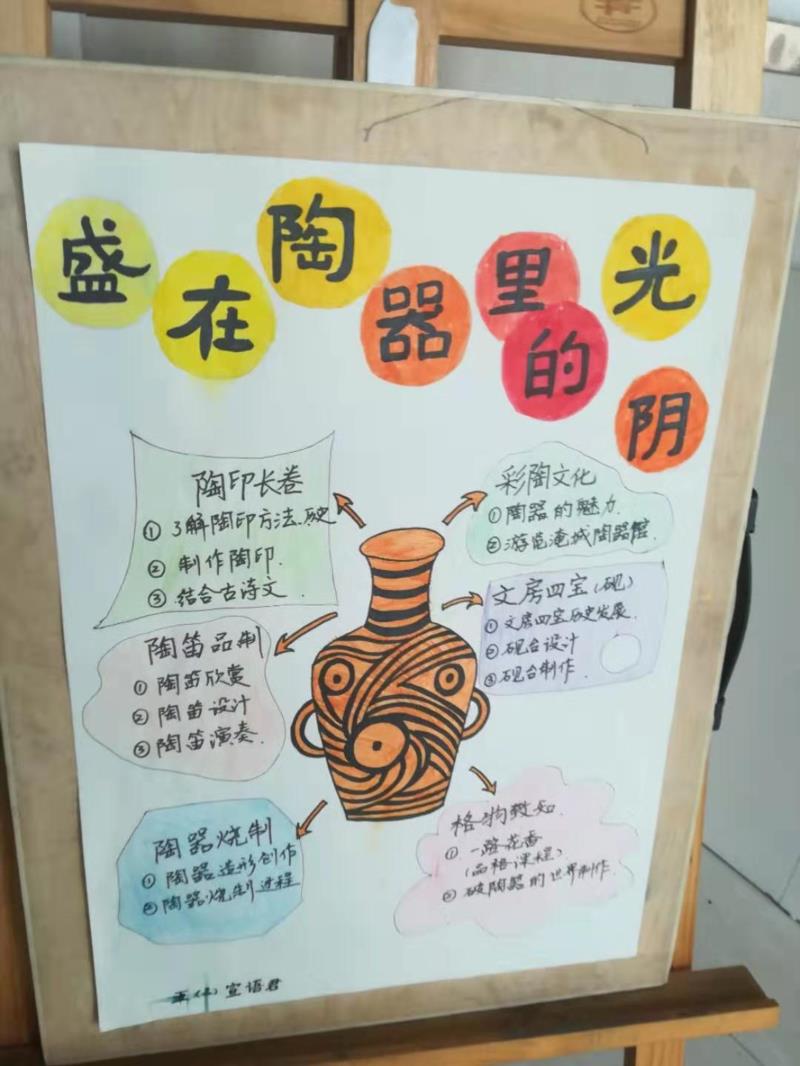 盛在陶器里的光阴
陶印长卷
① 了解陶印方法、历史
② 制作陶印.
③ 结合古诗文.
彩陶文化
① 陶器的魅力.
② 游览淹城陶器馆.
文房四宝(砚)
① 文房四宝历史发展.
② 砚台设计
③ 砚台制作.
陶笛品制
① 陶笛欣赏
② 陶笛设计
③ 陶笛演奏.
陶器烧制
① 陶器造形创作
② 陶器烧制进程
格物致知.
① 一路花香
(品格课程)
② 破陶器的世界制作.
宣语君